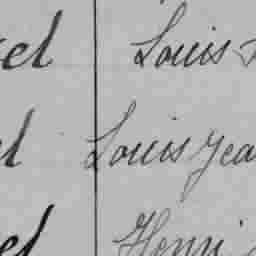 el Louis
el Louis Jea
el Henri